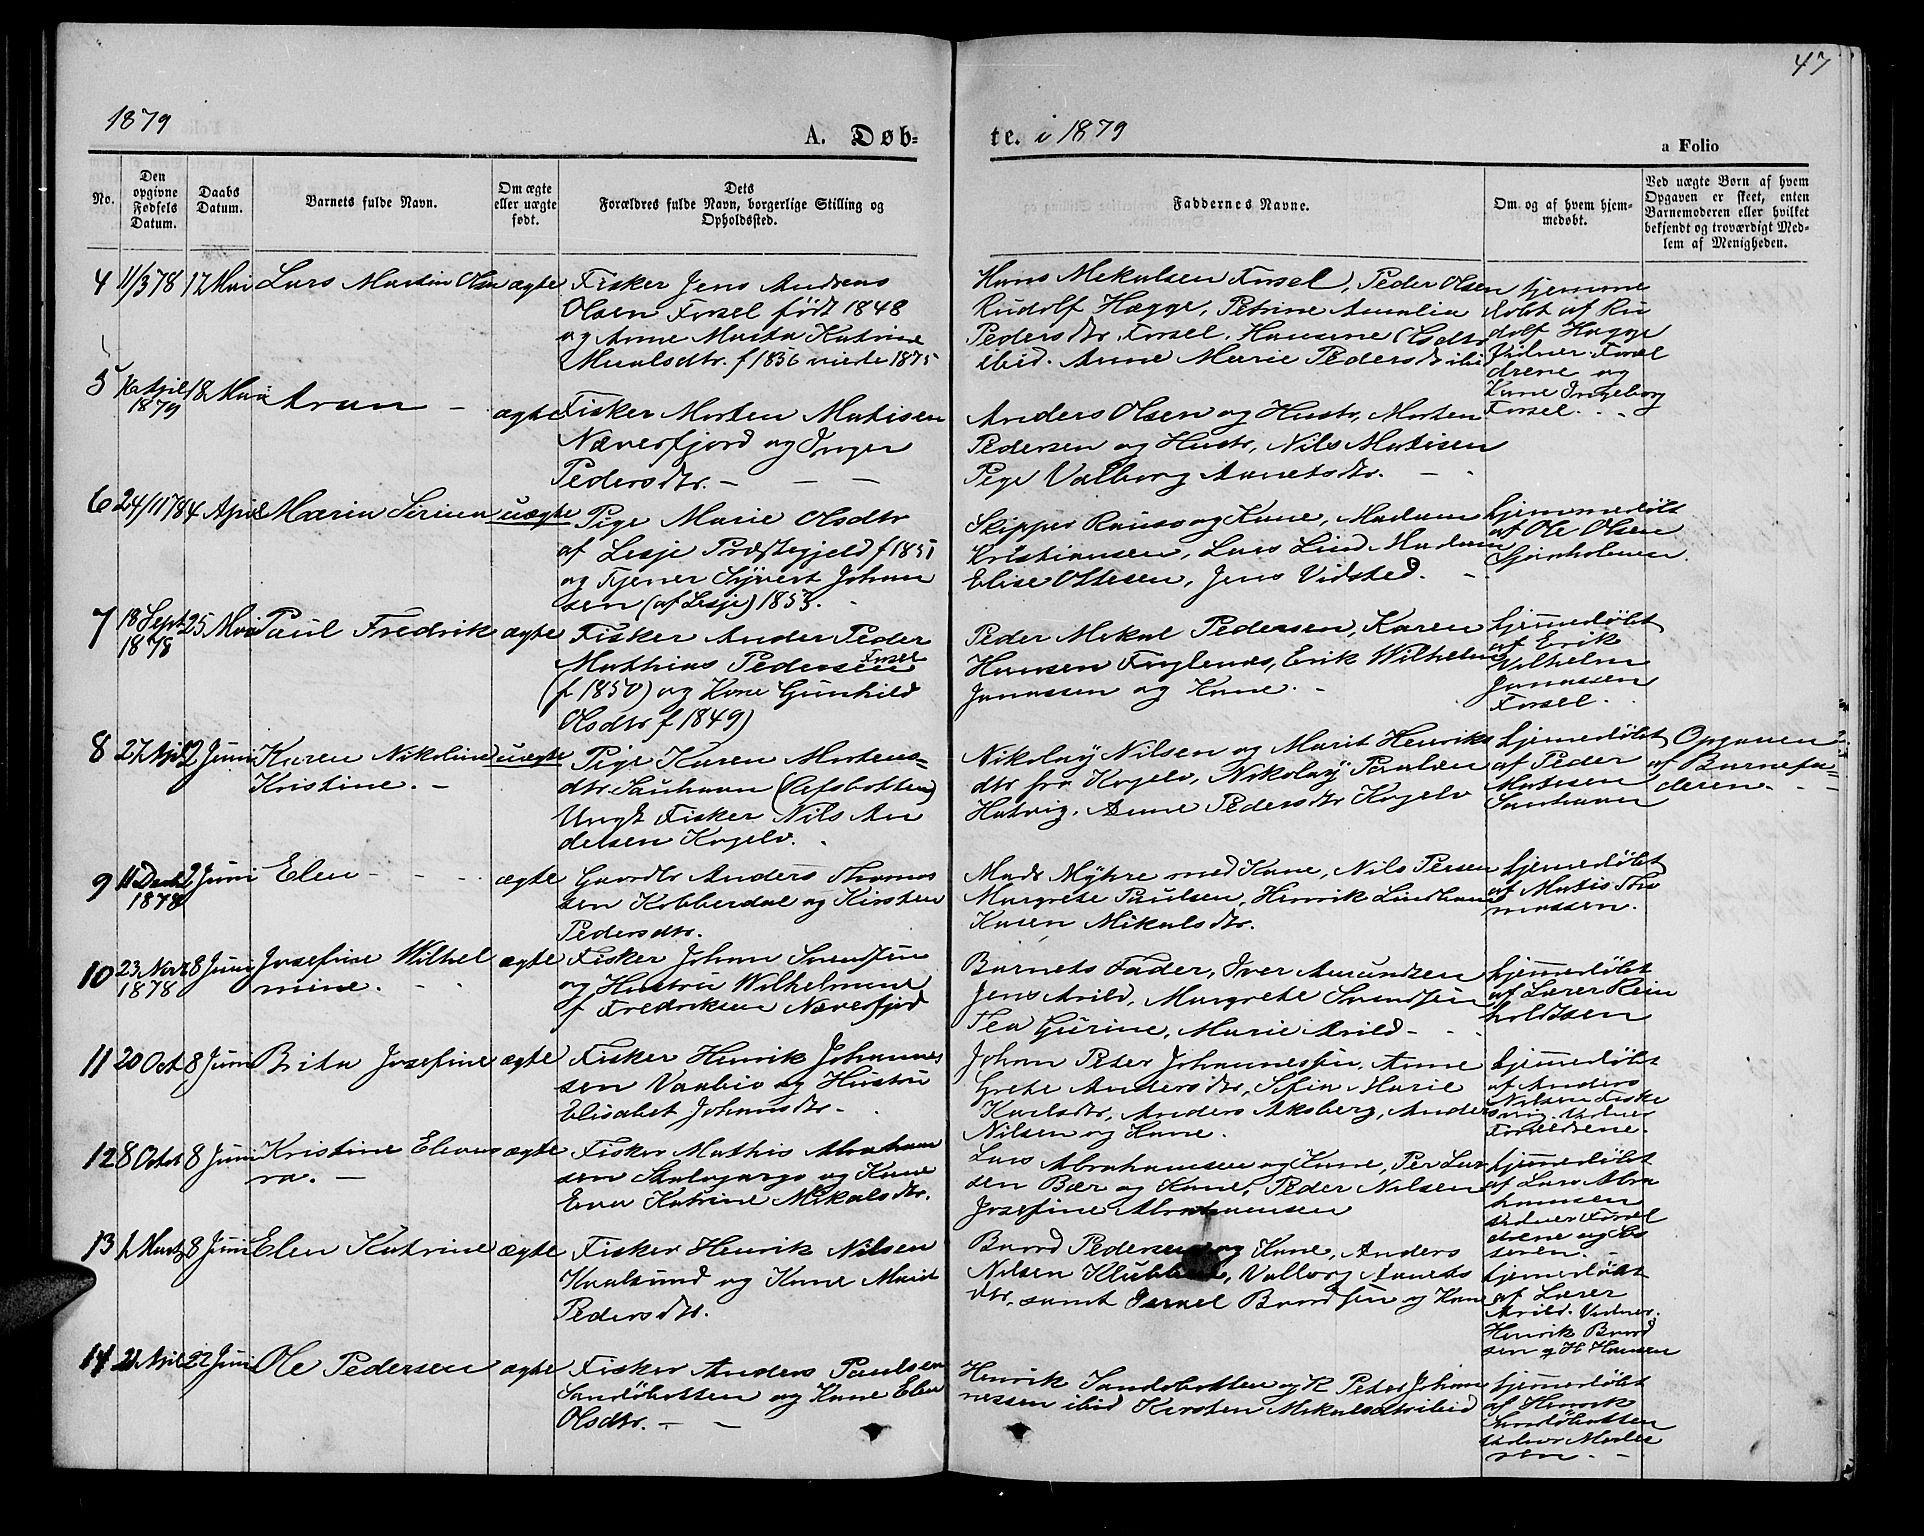 47
1879
A. Døb-
te. i 1879
a Folio
No.
Den opgivne Fødsels Datum.
Daabs Datum.
Barnets fulde Navn.
Om ægte eller uægte født.
Dets
Forældres fulde Navn, borgerlige Stilling og
Opholdssted.
Faddernes Navne.
Om og af hvem hjem-
medøbt.
Ved uægte Børn af hvem
Opgaven er skeet, enten
Barnemoderen eller hvilket
bekjendt og troværdigt Med-
lem af Menigheden.
4 11/3 78 17 Mai Lars Martin Olsen ægte Fisker Jens Andreas
Olsen Forsel født 1848
og Anne Marta Katrine
f 1856 viede 1875
Hans Mekalsen Forsel, Peder Olsen
Rudolf Hagge, Petrine Amalia
Pedersdtr Forsel, Hansine Olsdtr
ibid. Anne Marie Pedersdtr ibi
hjemme
døbt af Ru
dolf Hagge
Vidner Foræl
drene og
Kone Ingeborg
Forsel.
5 April 1879 18 Mai Aran ægte Fisker Morten Matisen
Næverfjord og Inger
Pedersdtr.
Anders Olsen og Hustr, Morten
Pedersen og Hustr, Nils Matisen
Pige Valborg Aanetsdtr.
6 24/11 78 4 April Maria Sirina uægte Pige Marie Olsdtr
af Lesje Præstegjeld f 1851
og Tjener Syvert Johan
sen (af Lesje) 1853.
Skipper og Kone, Madam
Kristiansen, Lars Lind Madam
Elise Ottesen, Jens Vidsted.
hjemmedøbt
af Ole Olsen
7 18 Sept 1878 25 Mai Paul Fredrik ægte Fisker Ander Peder
Mathias Pedersen Forsel
(f 1850) og Kone Gunhild
Olsdtr f 1849)
Peder Mekal Pedersen, Karen
Hansen Fuglenes, Erik Wilhelm
Jonassen og Kone.
hjemedøbt
af Erik
Wilhelm
Jonassen
Forsel.
8 27 April 2 Juni Karen Nikoline uægte Pige Karen Mortens-
Kristine.
dtr. Sauhavn (Refsbotten)
Ungk Fisker Nils An
delsen Kogelv.
Nikolay Nilsen og Marit Henriks
dtr fra Kogelv, Nikolay Paulsen
Hatvig. Anne Pedersdtr Kogelv
hjemedøbt
af Peder
Matisen
Sauhavn
Opgaven
af Barnefa-
deren.
9 11 Decbr 1878 2 Juni Elen ægte Gaardbr Anders Thomas
sen Kobberdal og Kirsten
Pedersdtr.
Mads Myhre med Kone, Nils Persen
Margrete Paulsen, Henrik Lindhavn
Karen Mikalsdtr.
hjemedøbt
af Matis Tho
massen.
10 23 Novbr 1878 8 Juni Josefine Wilhel ægte Fisker Johan Svendsen
mine.
og Hustru Wilhelmine
f Fredriksen Næverfjord
Barnets Fader, Iver Amundsen
Jens Arild, Margrete Svendsen
Tea Gurine, Marie Arild
hjemedøbt
af Lærer Rein
holdtsen
11 20 Oct 8 Juni Brita Josefine ægte Fisker Henrik Johannes
sen og Hustru
Elisabet Johansdtr.
Johan Peter Johannessen. Anne
Grete Andersdtr, Sofia Marie
Karlsdtr, Anders Aksberg, Anders
Nilsen og Kone.
hjemedøbt
af Anders
Nilsen Fiske
vig. Vidner
Forældrene.
12 8 Octbr 8 Juni Kristine Eleno ægte Fisker Mathis Abraham
ra.
sen og Kone
Eva Katrine Mekalsdtr.
Lars Abrahamsen og Kone, Per Lar
sen Bær og Kone, Peder Nilsen
Josefine Abrahamsen
hjemedøbt
af Lars Abra
hamsen
Vidner Foræl
drene og Lo
seren.
13 1 Marts 8 Juni Elen Katrine ægte Fisker Henrik Nilsen
Kvalsund og Kone Marit
Pedersdtr.
Baard Pedersen og Kone, Anders
Nilsen Klubben, Valborg Aanets
dtr. samt Israel Baardsen og Kone
hjemedøbt
af Lærer
Arild. Vidner.
Henrik Baard
sen og H Hansen
14 21 April 22 Juni Ole Pedersen ægte Fisker Anders Paulsen
Sandøbotten og Kone Elen
Olsdtr.
Henrik Sandøbotten og K Peter Johan
nessen ibid Kirsten Mekalsdtr ibid
hjemedøbt
af Henrik
Sandøbotten
Vidner Mode
ren.